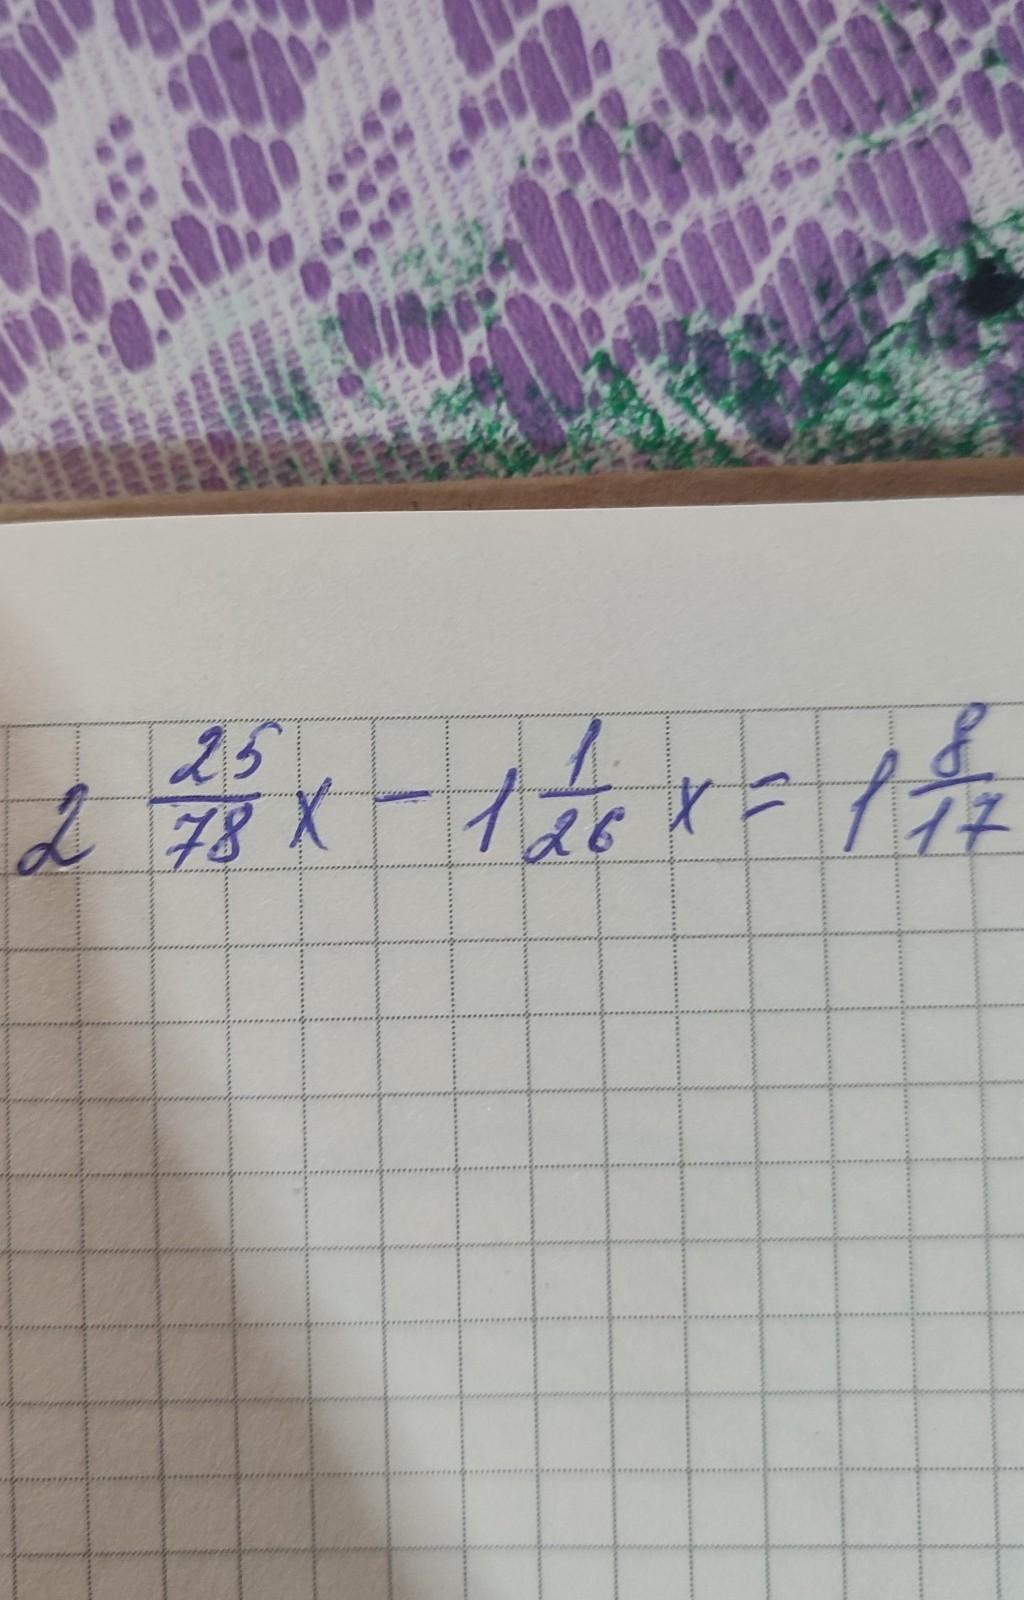 2 25/78 x - 1 1/26 x = 1 8/17